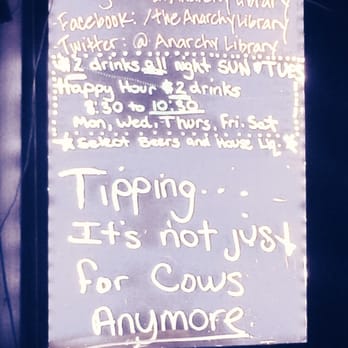 Anarchy Library
Facebook: /theAnarchyLibrary
Twitter: @AnarchyLibrary
$2 drinks all night SUN & TUES
Happy Hour $2 drinks
8:30 to 10:30
Mon, Wed, Thurs, Fri, Sat
* Select Beers and House Liq. *
Tipping...
It's not just
for Cows
Anymore.